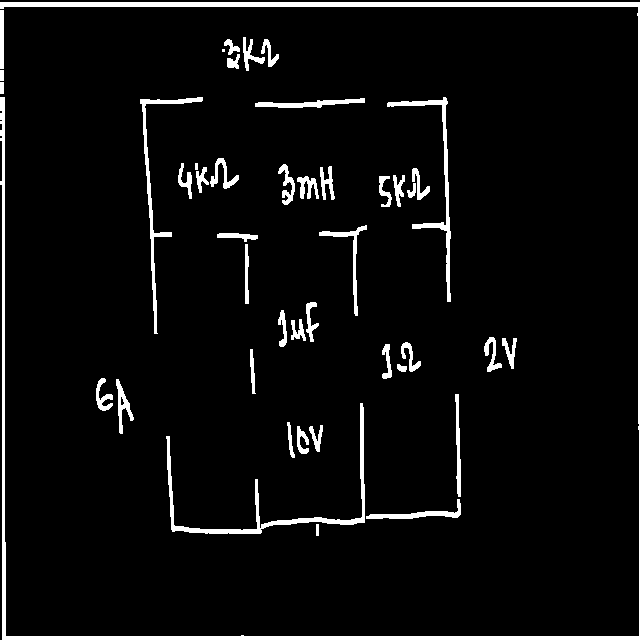 3KΩ
4KΩ 3mH 5KΩ
1μF
1Ω 2V
6A
10V